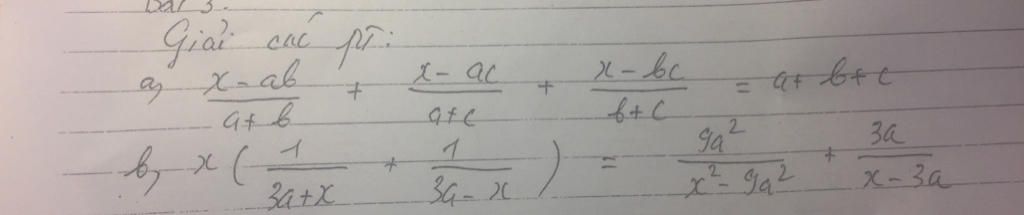 Bài 3.
Giải các pt:
a, \frac{x-ab}{a+b} + \frac{x-ac}{a+c} + \frac{x-bc}{b+c} = a+b+c
b, x(\frac{1}{3a+x} + \frac{1}{3a-x}) = \frac{9a^2}{x^2-9a^2} + \frac{3a}{x-3a}